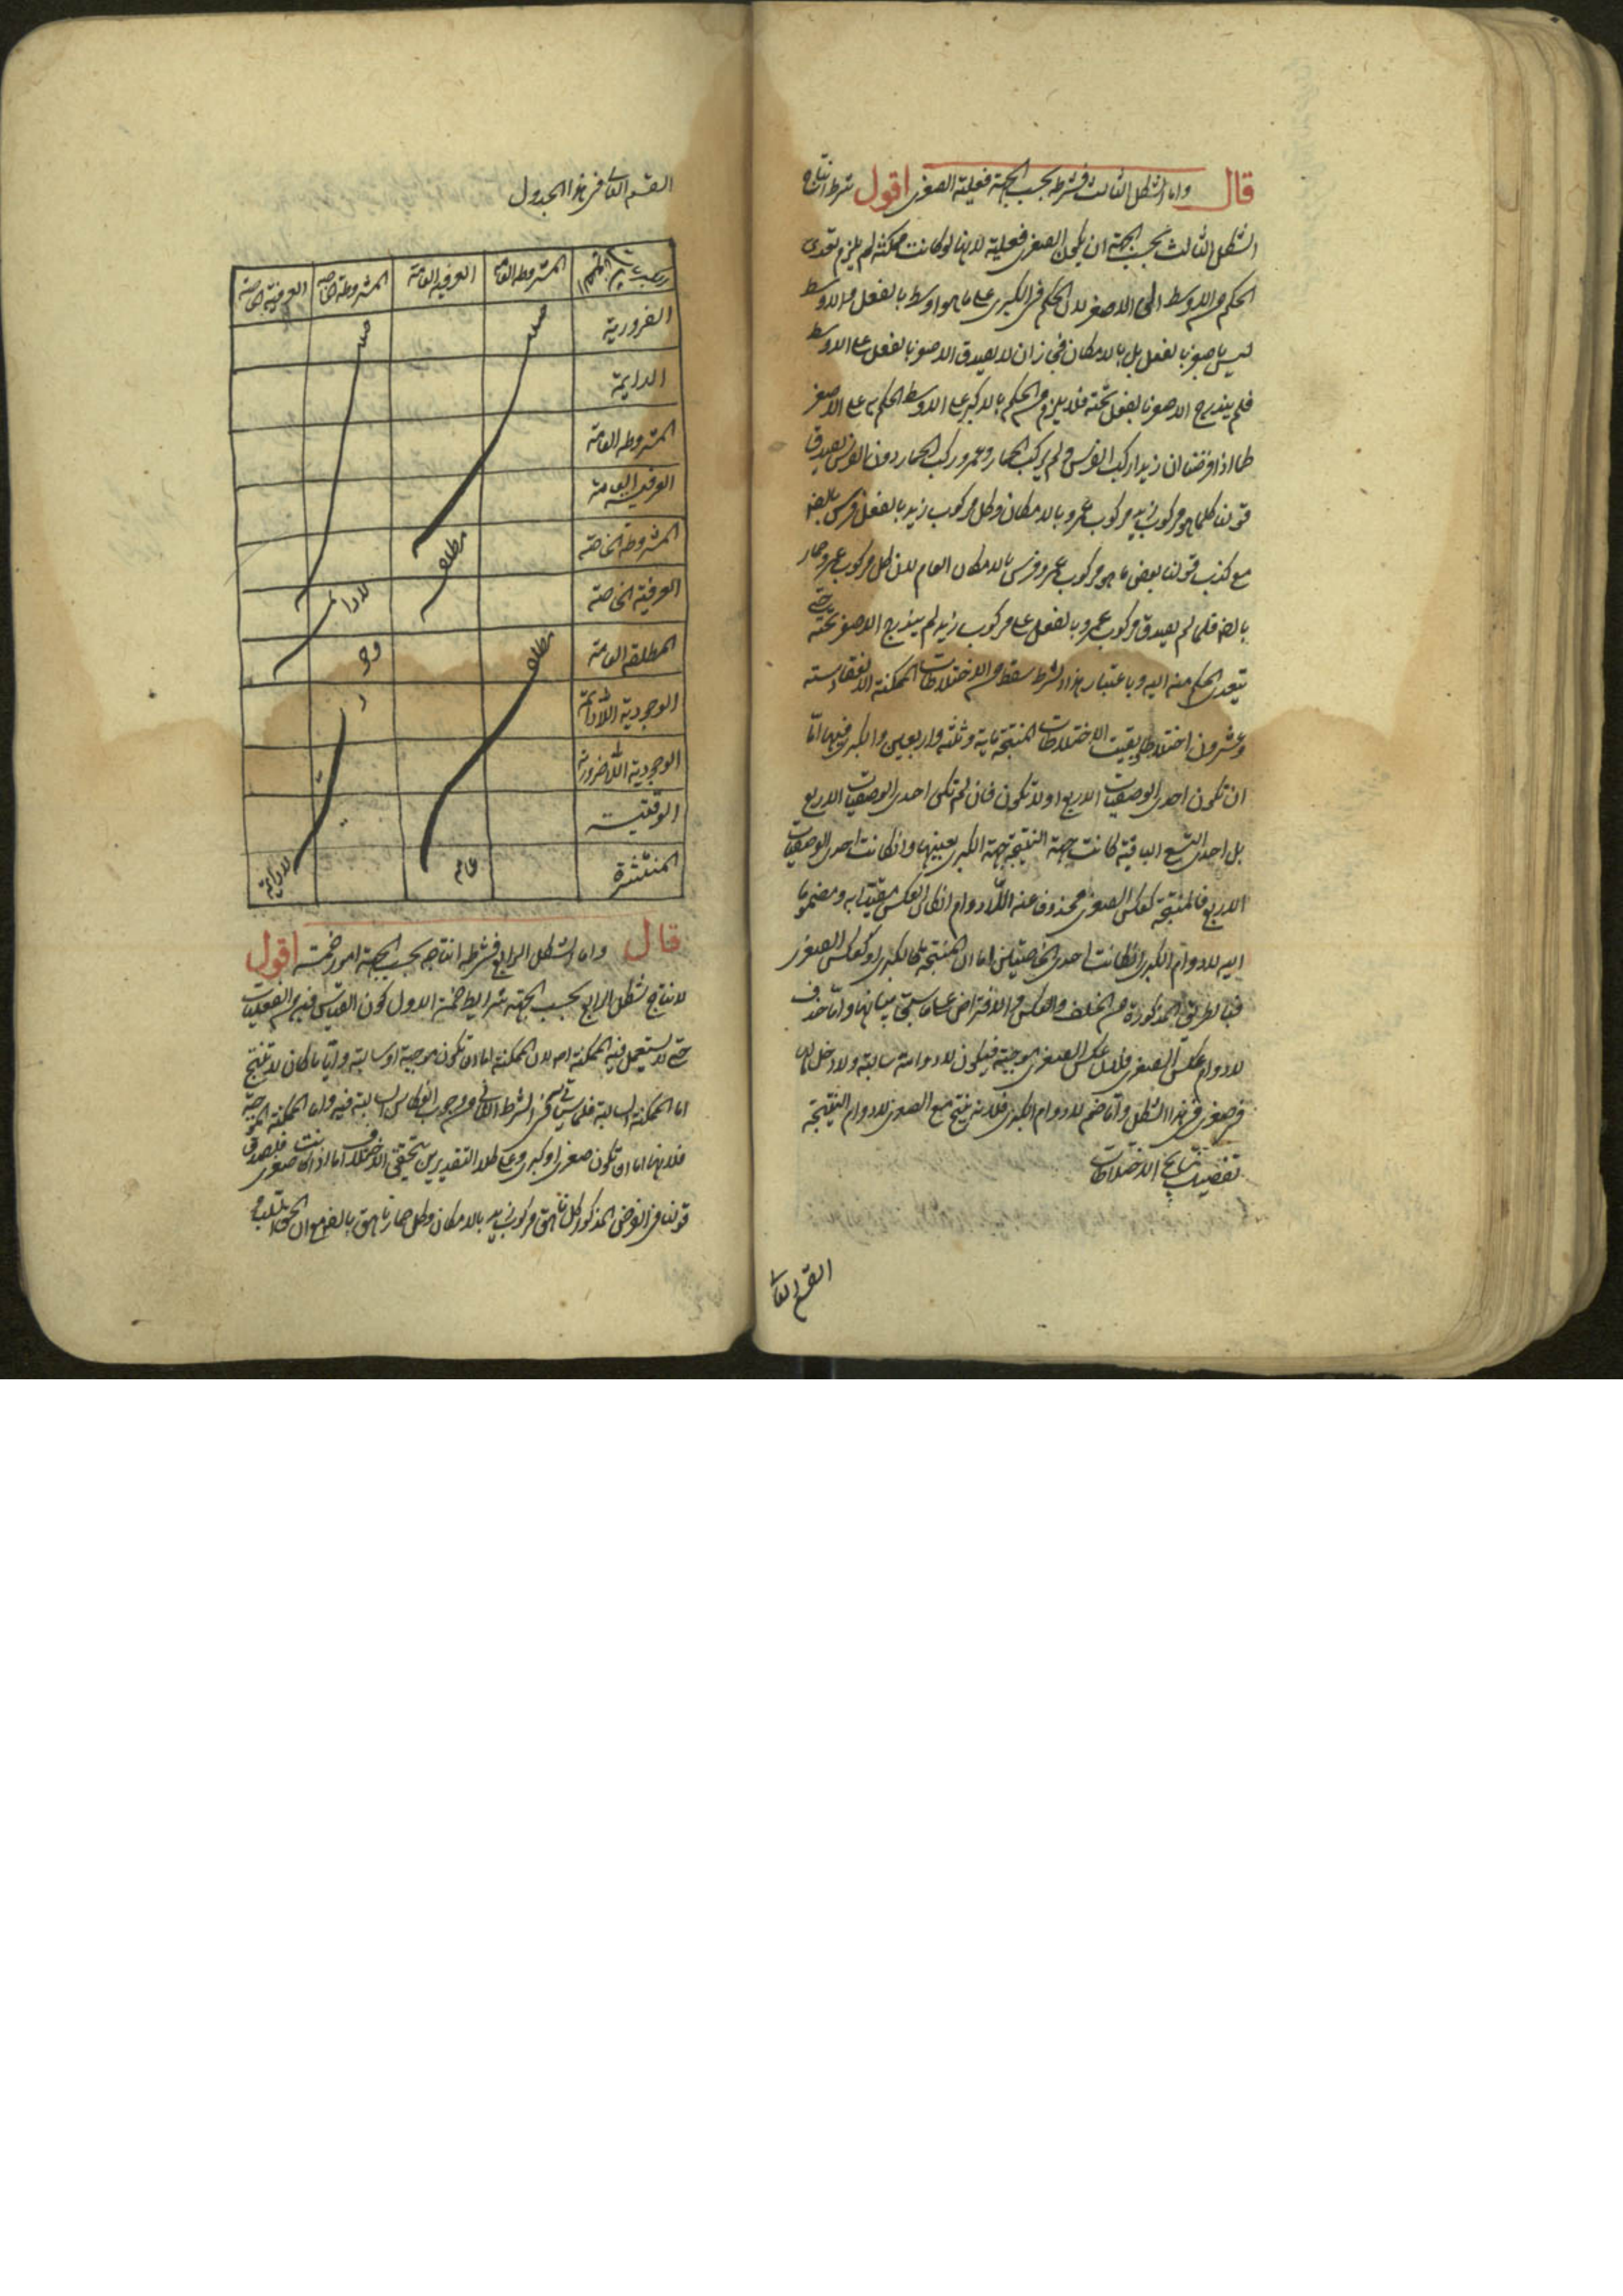 قال واما الشكل الثالث فشرطه بحسب الجهة فعلية الصغرى اقول شرط انتاج
الشكل الثالث بحسب الجهة ان يكون الصغرى فعلية لانها لو كانت ممكنة لم يلزم تعدى
الحكم من الاوسط الى الاصغر لان الحكم فى الكبرى على ما هو اوسط بالفعل والاوسط
ليس باصغر بالفعل بل بالامكان فجاز ان لا يصدق الاصغر بالفعل على الاوسط
فلم يندرج الاصغر بالفعل تحته فلا يلزم من الحكم بالاكبر على الاوسط الحكم به على الاصغر
كما اذا فرضنا ان زيدا ركب الفرس ولم يركب الحمار وعمرو ركب الحمار دون الفرس يصدق
قولنا كلما هو مركوب زيد مركوب عمرو بالامكان وكل مركوب زيد بالفعل فرس بالضر
مع كذب قولنا بعض ما هو مركوب عمرو فرس بالامكان العام لان كل مركوب عمرو حمار
بالضر فلما لم يصدق مركوب عمرو بالفعل على مركوب زيد لم يندرج الاصغر تحته حتى
يتعدى الحكم منه اليه وباعتبار هذا الشرط سقط من الاختلاطات الممكنة الانعقاد ستة
وعشرون اختلاطا بقيت الاختلاطات المنتجة ماية وثلثة واربعين والكبرى فيها امّا
ان تكون احدى الوصفيات الاربع او لا تكون فان لم تكن احدى الوصفيات الاربع
بل احدى التسع الباقية كانت جهة النتيجة جهة الكبرى بعينها وان كانت احدى الوصفيات
الاربع فالنتيجة كعكس الصغرى محذوفا عنه اللادوام ان كان العكس مقيدا به ومضموما
اليه لادوام الكبرى ان كانت احدى الخاصتين اما ان النتيجة كالكبرى او كعكس الصغرى
فبالطرق المذكورة من الخلف والعكس والافتراض على ما سبق بيانها واما حذف
لادوام عكس الصغرى فلان عكس الصغرى موجبة فيكون لادوامه سالبة ولا دخل لها
فى صغرى هذا الشكل واما ضم لادوام الكبرى فلانه ينتج مع الصغرى لادوام النتيجة
تفصيل نتايج الاختلاطات
القسم الثانى
القسم الثانى فى هذا الجدول
المشروطة العامة العرفية العامة المشروطة الخاصة العرفية الخاصة
الضرورية
الدايمة
المشروطه العامة
العرفية العامة
المشروطة الخاصة
العرفية الخاصة
المطلقة العامة
الوجودية اللادائمة
الوجودية اللاضرورية
الوقتية
المنتشرة
مطلقة
مطلقة
عامة
لادائمة
قال واما الشكل الرابع فشرط انتاجه بحسب الجهة امور خمسة اقول
لانتاج الشكل الرابع بحسب الجهة شرايط خمسة الاول كون القياس فيه من الفعليات
حتى لا يستعمل فيه الممكنة اصلا لان الممكنة اما ان تكون موجبة او سالبة وايّا ما كان لا تنتج
اما الممكنة السالبة فلما سيأتى فى الشرط الثانى من وجوب انعكاس السالبة فيه واما الممكنة الموجبة
فلانها اما ان تكون صغرى او كبرى وعلى كلا التقديرين يتحقق الاختلاف اما اذا كانت صغرى فلصدق
قولنا فى الفرض المذكور كل ناهق مركوب زيد بالامكان وكل حمار ناهق بالضر مع ان الحق السلب